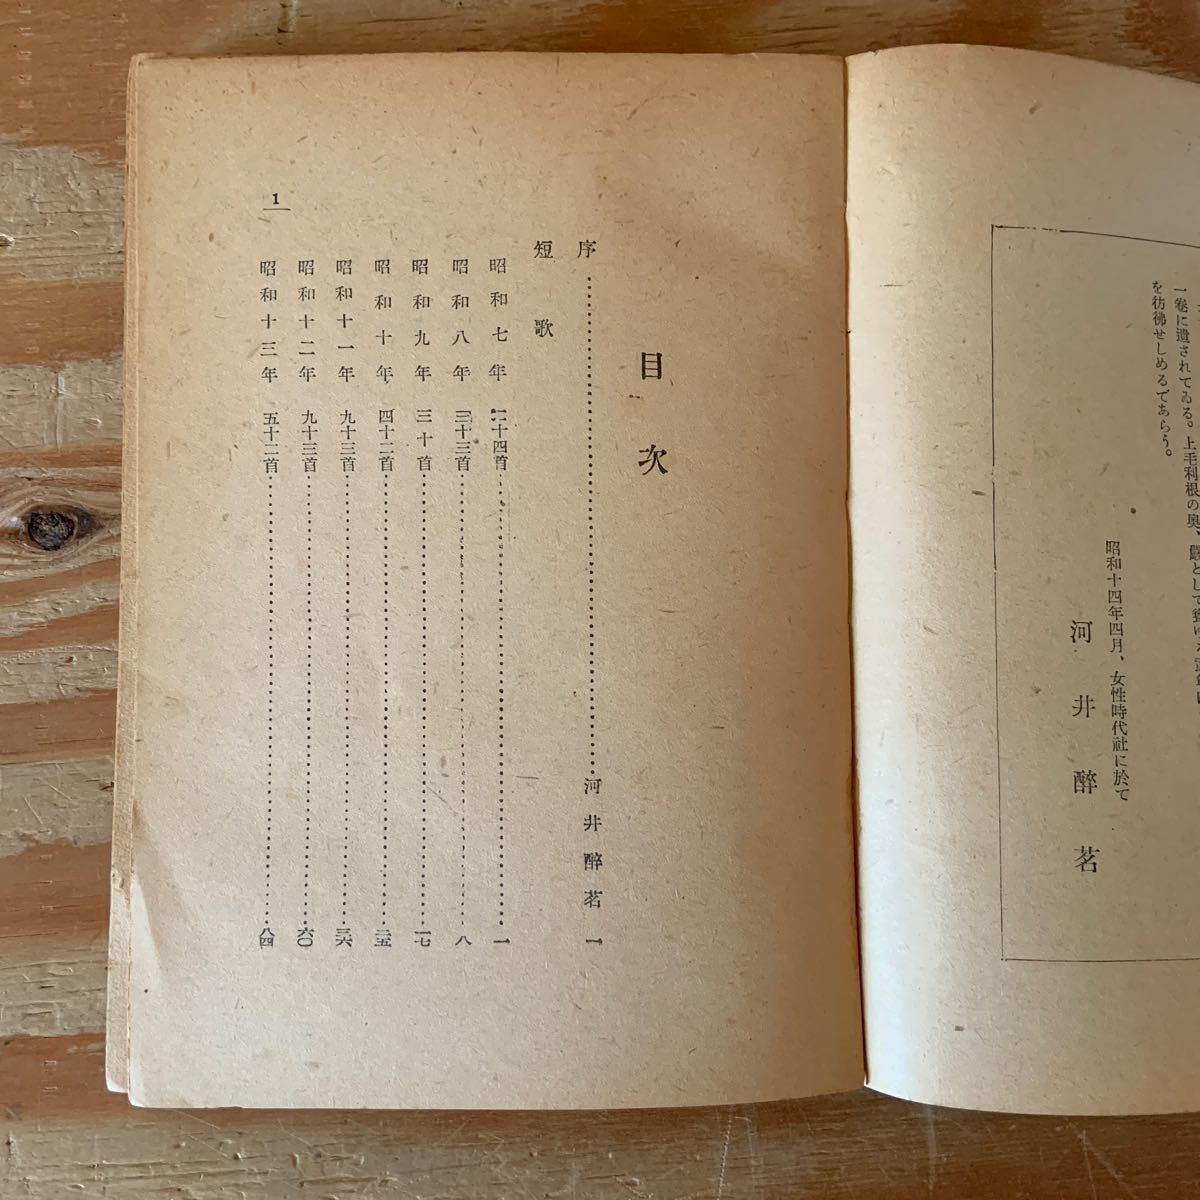 一卷に遺されてゐる。上毛利根の奧、
を彷彿せしめるであらう。
昭和十四年四月、女性時代社に於て
河井醉茗
目次
序……河井醉茗 一
短歌
昭和七年 二十四首……一
昭和八年 三十三首……八
昭和九年 三十首……一七
昭和十年 四十二首……二五
昭和十一年 九十三首……三六
昭和十二年 九十三首……六〇
昭和十三年 五十二首……八四
1